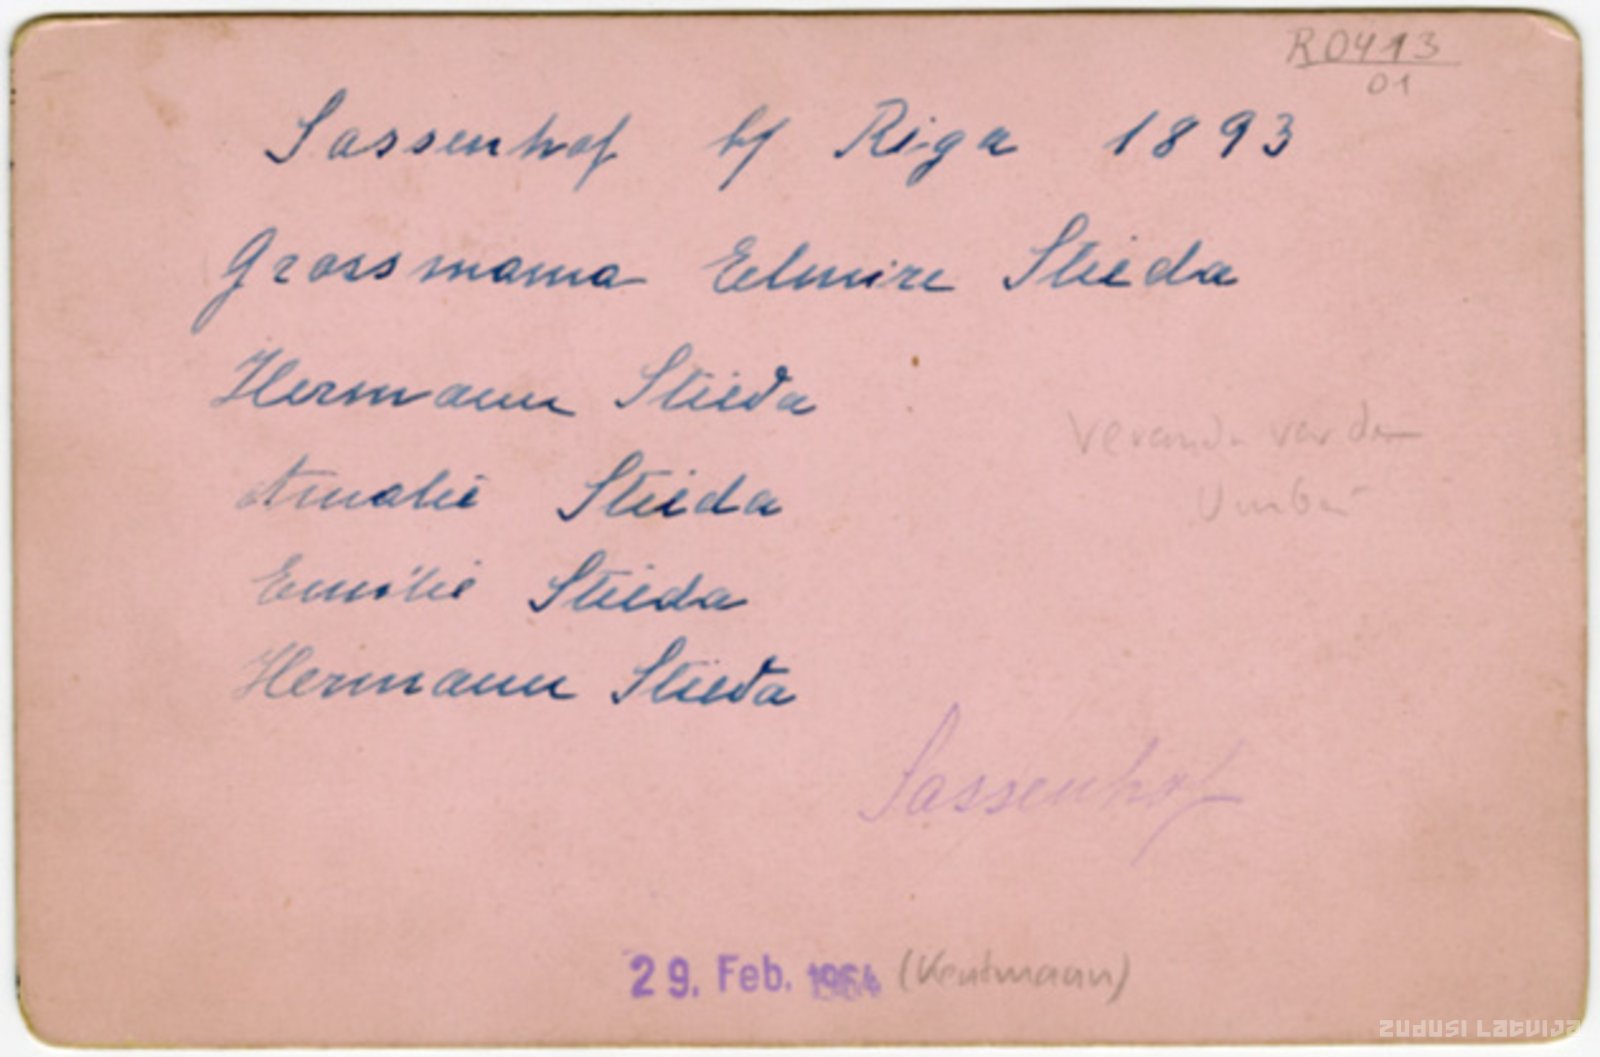 R0413
01
Sassenhof b/ Riga 1893
Grossmama Elmire Stieda
Hermann Stieda
Amalie Stieda
Veranda vor dem
Umbau
Emilie Stieda
Hermann Stieda
Sassenhof
29. Feb. 1964 (Kentmann)
ZUDUSI LATVIJA